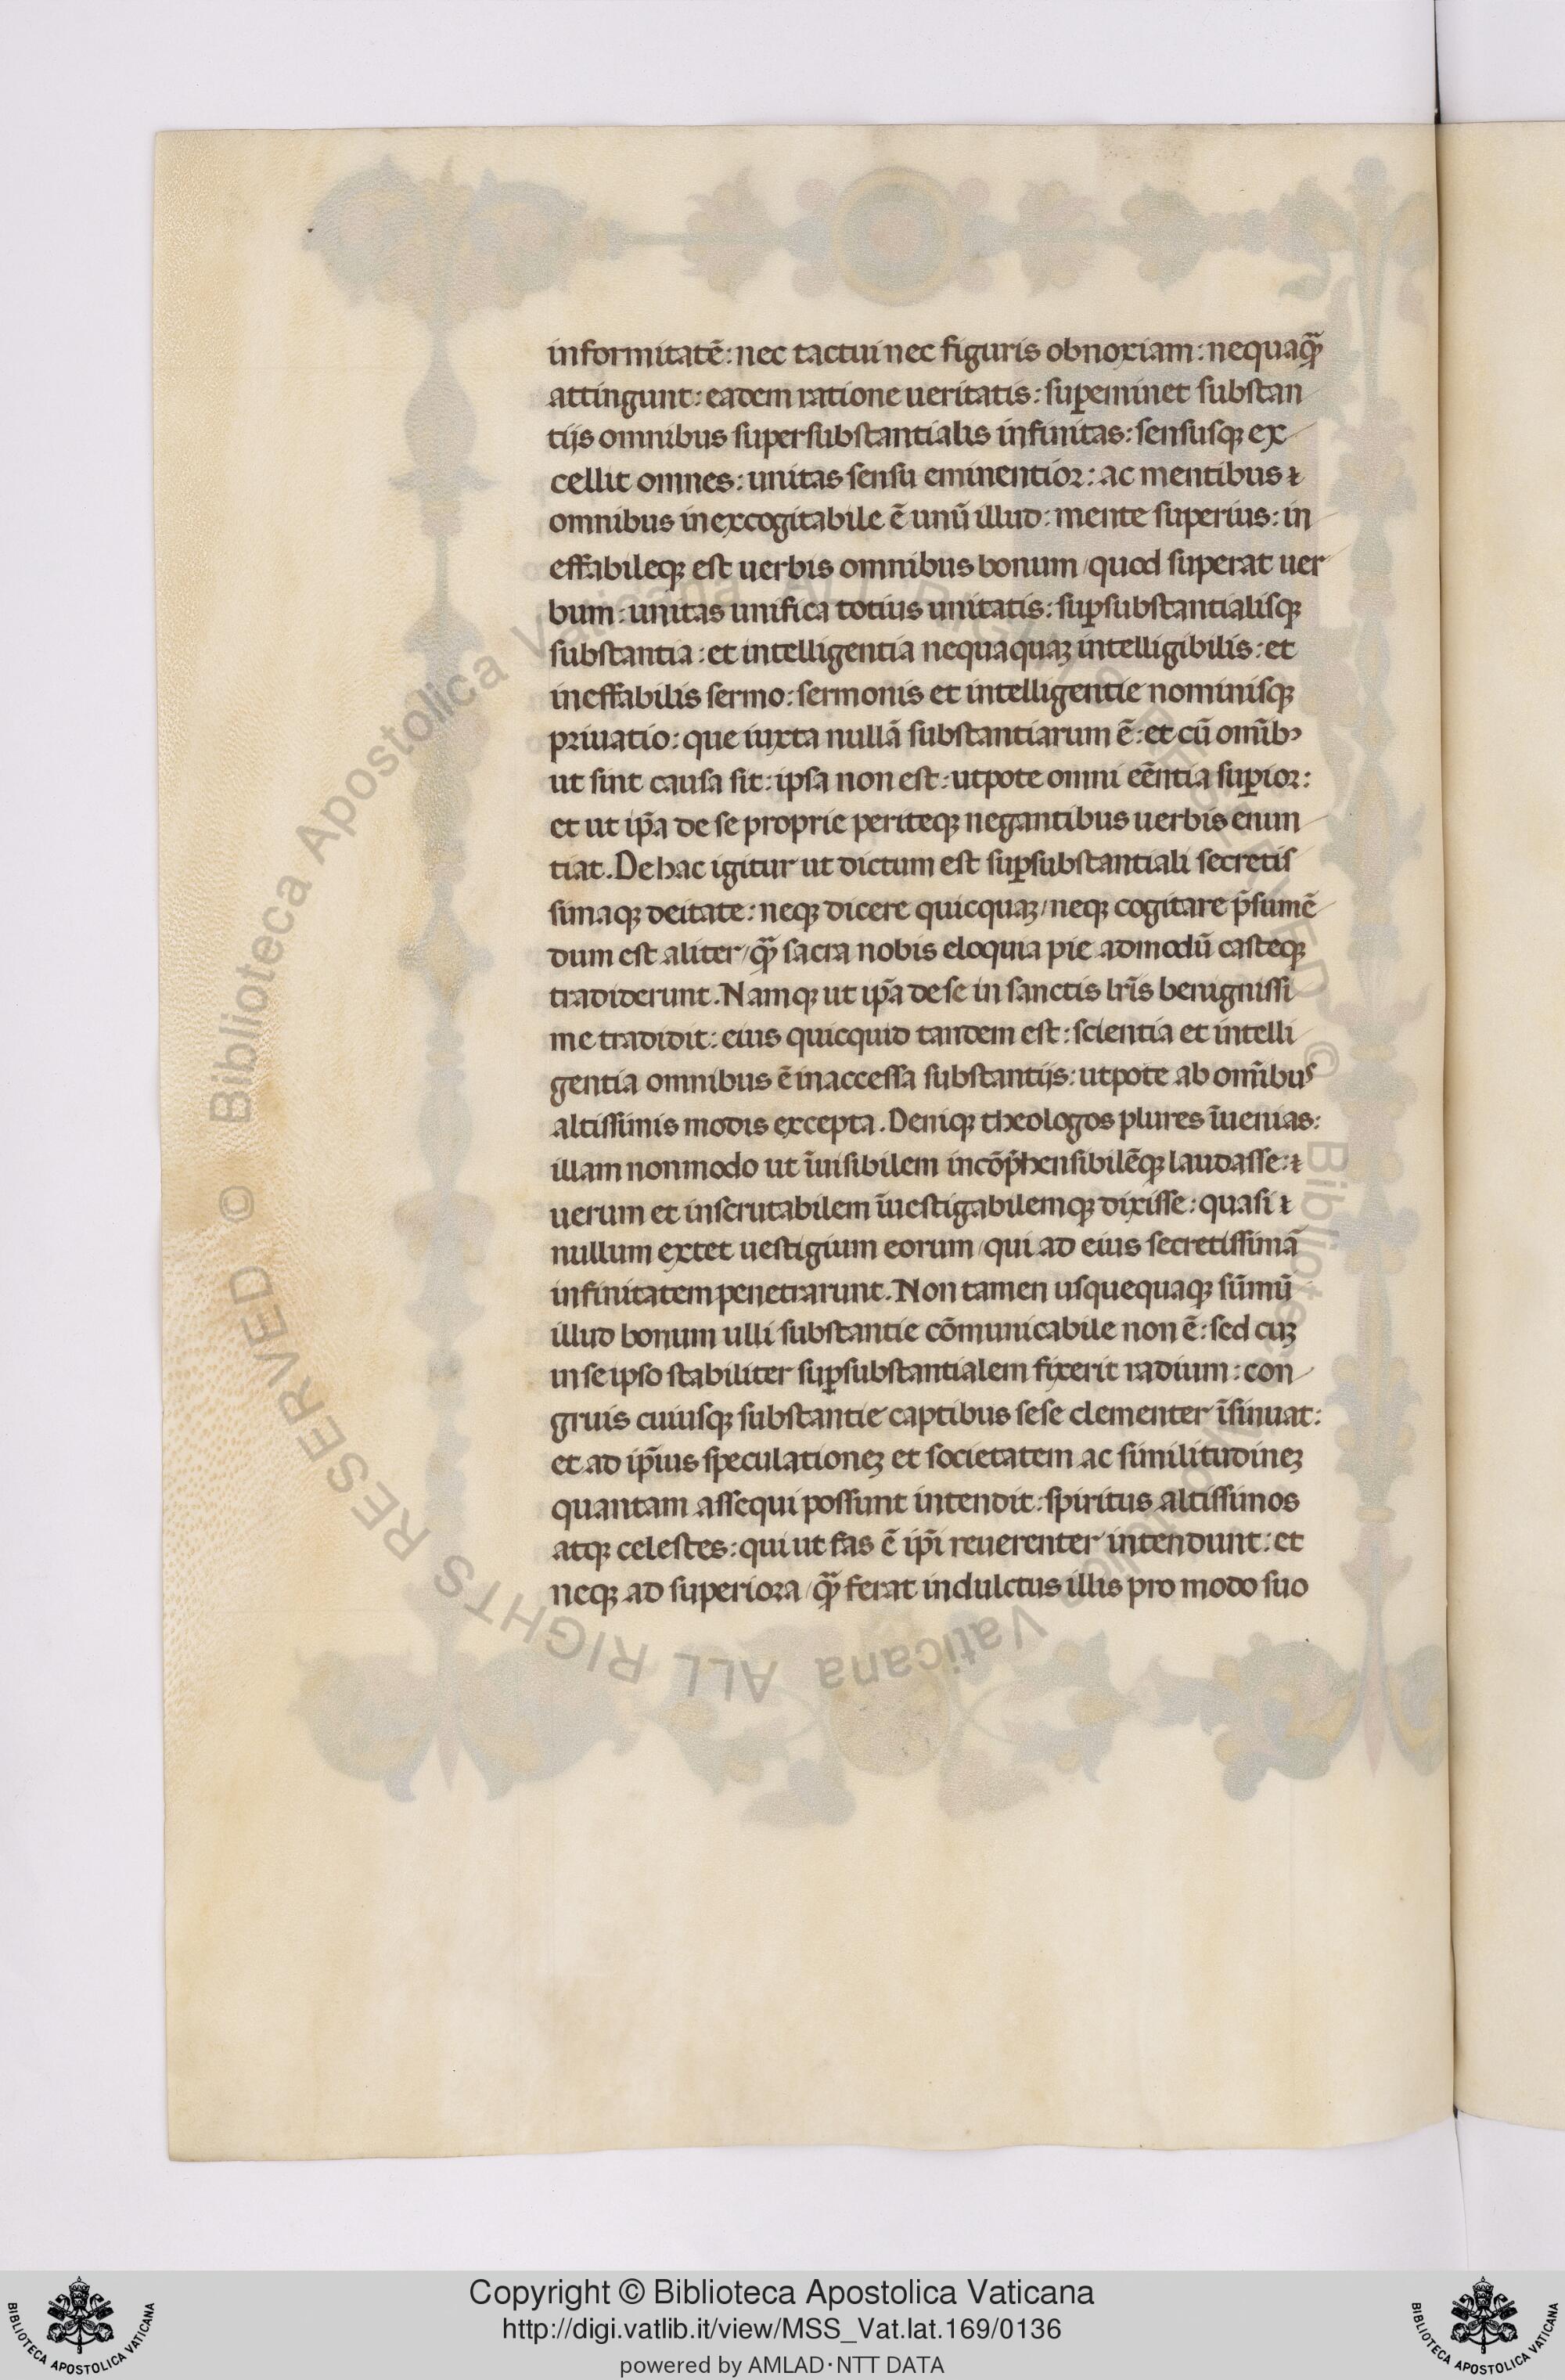 informitatē: nec tactui nec figuris obnoxiam: nequaqȝ̄
attingunt: eadem ratione ueritatis: suꝑeminet substan
tijs omnibus supersubstantialis infinitas: sensusqȝ ex
cellit omnes: unitas sensu eminentior: ac mentibus ⁊
omnibus inexcogitabile ē unū illud: mente superius: in
effabileqȝ est uerbis omnibus bonum / quod superat uer
bum: unitas unifica totius unitatis: suꝑsubstantialisqȝ
substantia: et intelligentia nequaquaȝ intelligibilis: et
ineffabilis sermo: sermonis et intelligentie nominisqȝ
priuatio: que iuxta nullā substantiarum ē: et cū om̄ibꝫ
ut sint causa sit: ipsa non est: utpote omni eēntia suꝑior:
et ut ip̄a de se proprie periteqȝ negantibus uerbis enun
tiat. De hac igitur ut dictum est suꝑsubstantiali secretis
simaqȝ deitate: neqȝ dicere quicquaȝ / neqȝ cogitare p̄sumē
dum est aliter / qȝ̄ sacra nobis eloquia pie admodū casteqȝ
tradiderunt. Namqȝ ut ip̄a de se in sanctis lr̄is benignissi
me tradidit: eius quicquid tandem est: scientia et intelli
gentia omnibus ē inaccessa substantijs: utpote ab om̄ibus
altissimis modis excepta. Deniqȝ theologos plures īuenias:
illam nonmodo ut īuisibilem incōp̄hensibilēqȝ laudasse: ⁊
uerum et inscrutabilem īuestigabilemqȝ dixisse: quasi ⁊
nullum extet uestigium eorum / qui ad eius secretissimā
infinitatem penetrarunt. Non tamen usquequaqȝ sūmū
illud bonum ulli substantie cōmunicabile non ē: sed cuȝ
in se ipso stabiliter suꝑsubstantialem fixerit radium: con
gruis cuiusqȝ substantie captibus sese clementer īsinuat:
et ad ip̄ius speculationeȝ et societatem ac similitudineȝ
quantam assequi possunt intendit: spiritus altissimos
atqȝ celestes: qui ut fas ē ip̄i reuerenter intendunt: et
neqȝ ad superiora / qȝ̄ ferat indulctus illis pro modo suo
© Biblioteca Apostolica Vaticana ALL RIGHTS RESERVED © Biblioteca Apostolica Vaticana ALL RIGHTS RESERVED
Copyright © Biblioteca Apostolica Vaticana
http://digi.vatlib.it/view/MSS_Vat.lat.169/0136
powered by AMLAD·NTT DATA
BIBLIOTECA APOSTOLICA VATICANA
BIBLIOTECA APOSTOLICA VATICANA